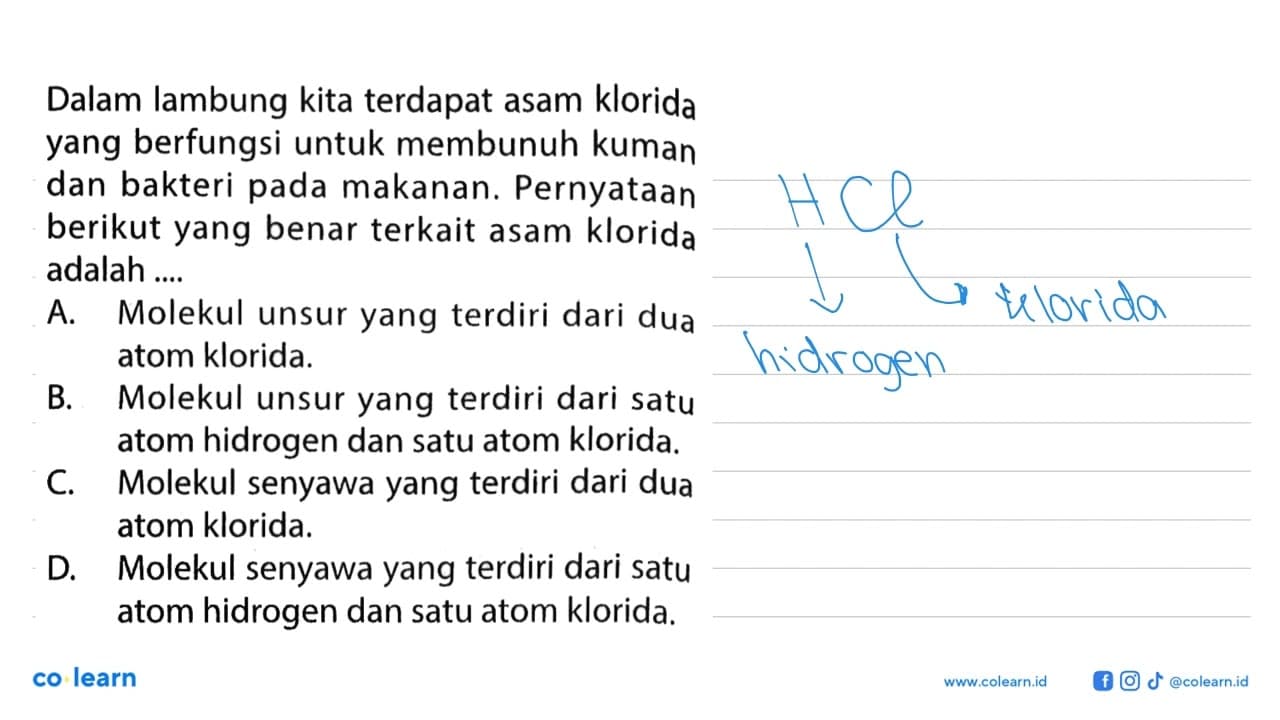 Dalam lambung kita terdapat asam klorida
yang berfungsi untuk membunuh kuman
dan bakteri pada makanan. Pernyataan
berikut yang benar terkait asam klorida
adalah ....
A. Molekul unsur yang terdiri dari dua
atom klorida.
B. Molekul unsur yang terdiri dari satu
atom hidrogen dan satu atom klorida.
C. Molekul senyawa yang terdiri dari dua
atom klorida.
D. Molekul senyawa yang terdiri dari satu
atom hidrogen dan satu atom klorida.
HCl
klorida
hidrogen
co learn
www.colearn.id
@colearn.id